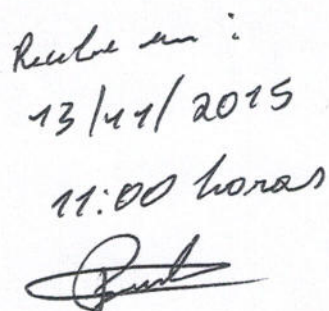 Recebi em :
13/11/2015
11:00 horas